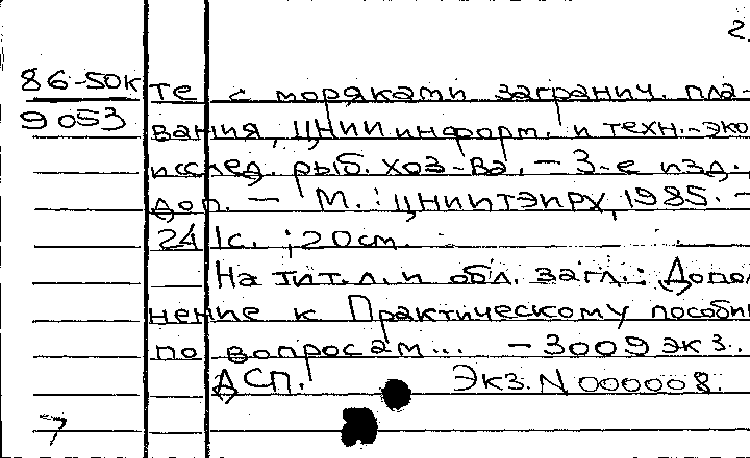 2.
86-50к те с моряками загранич. пла-
9053 вания, ЦНИИ информ. и техн.-эко
исслед. рыб. хоз-ва. - 3-е изд.,
доп. - М.: ЦНИИТЭИРХ, 1985. -
241с. ; 20см.
На тит.л. и обл. загл.: Допол
нение к Практическому пособи
по вопросам... - 3009 экз..
ДСП. Экз. N 000008.
7